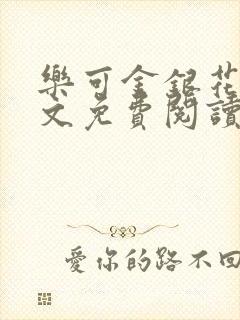 樂可金銀花
文免費閱讀
愛你的路不回